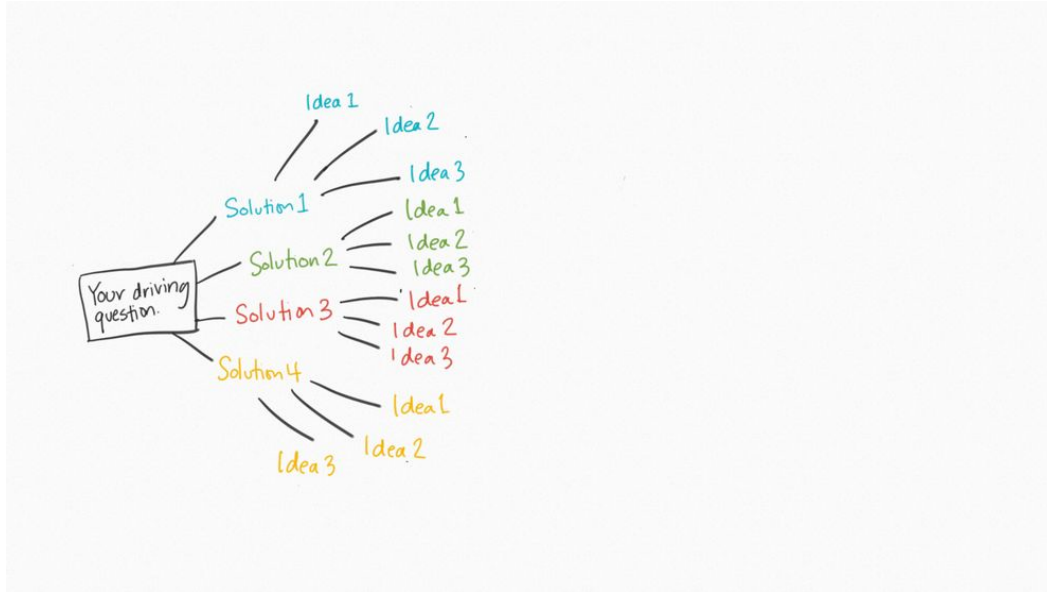 Your driving
question.
Solution 1
Idea 1
Idea 2
Idea 3
Solution 2
Idea 1
Idea 2
Idea 3
Solution 3
Idea 1
Idea 2
Idea 3
Solution 4
Idea 1
Idea 2
Idea 3